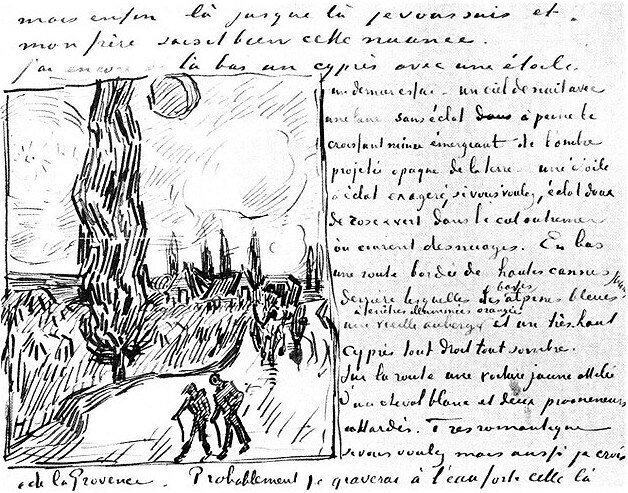 mais enfin là jusque là je vous sais et
mon frère saisit bien cette nuance.
J'ai encore de là bas un cyprès avec une étoile
un dernier essai - un ciel de nuit avec
une lune sans éclat à peine le
croissant mince émergeant de l'ombre
projetée opaque de la terre - une étoile
à éclat exagéré, si vous voulez, éclat doux
de rose & vert dans le ciel outremer
où courent des nuages. En bas
une route bordée de hautes cannes jaunes
derrière lesquelles les basses alpines bleues
une vieille auberge à fenêtres illuminées orangée et un très haut
cyprès tout droit tout sombre.
Sur la route une voiture jaune attelée
d'un cheval blanc et deux promeneurs
attardés. Très romantique
si vous voulez mais aussi je crois
de la Provence. Probablement je graverai à l'eau forte celle là